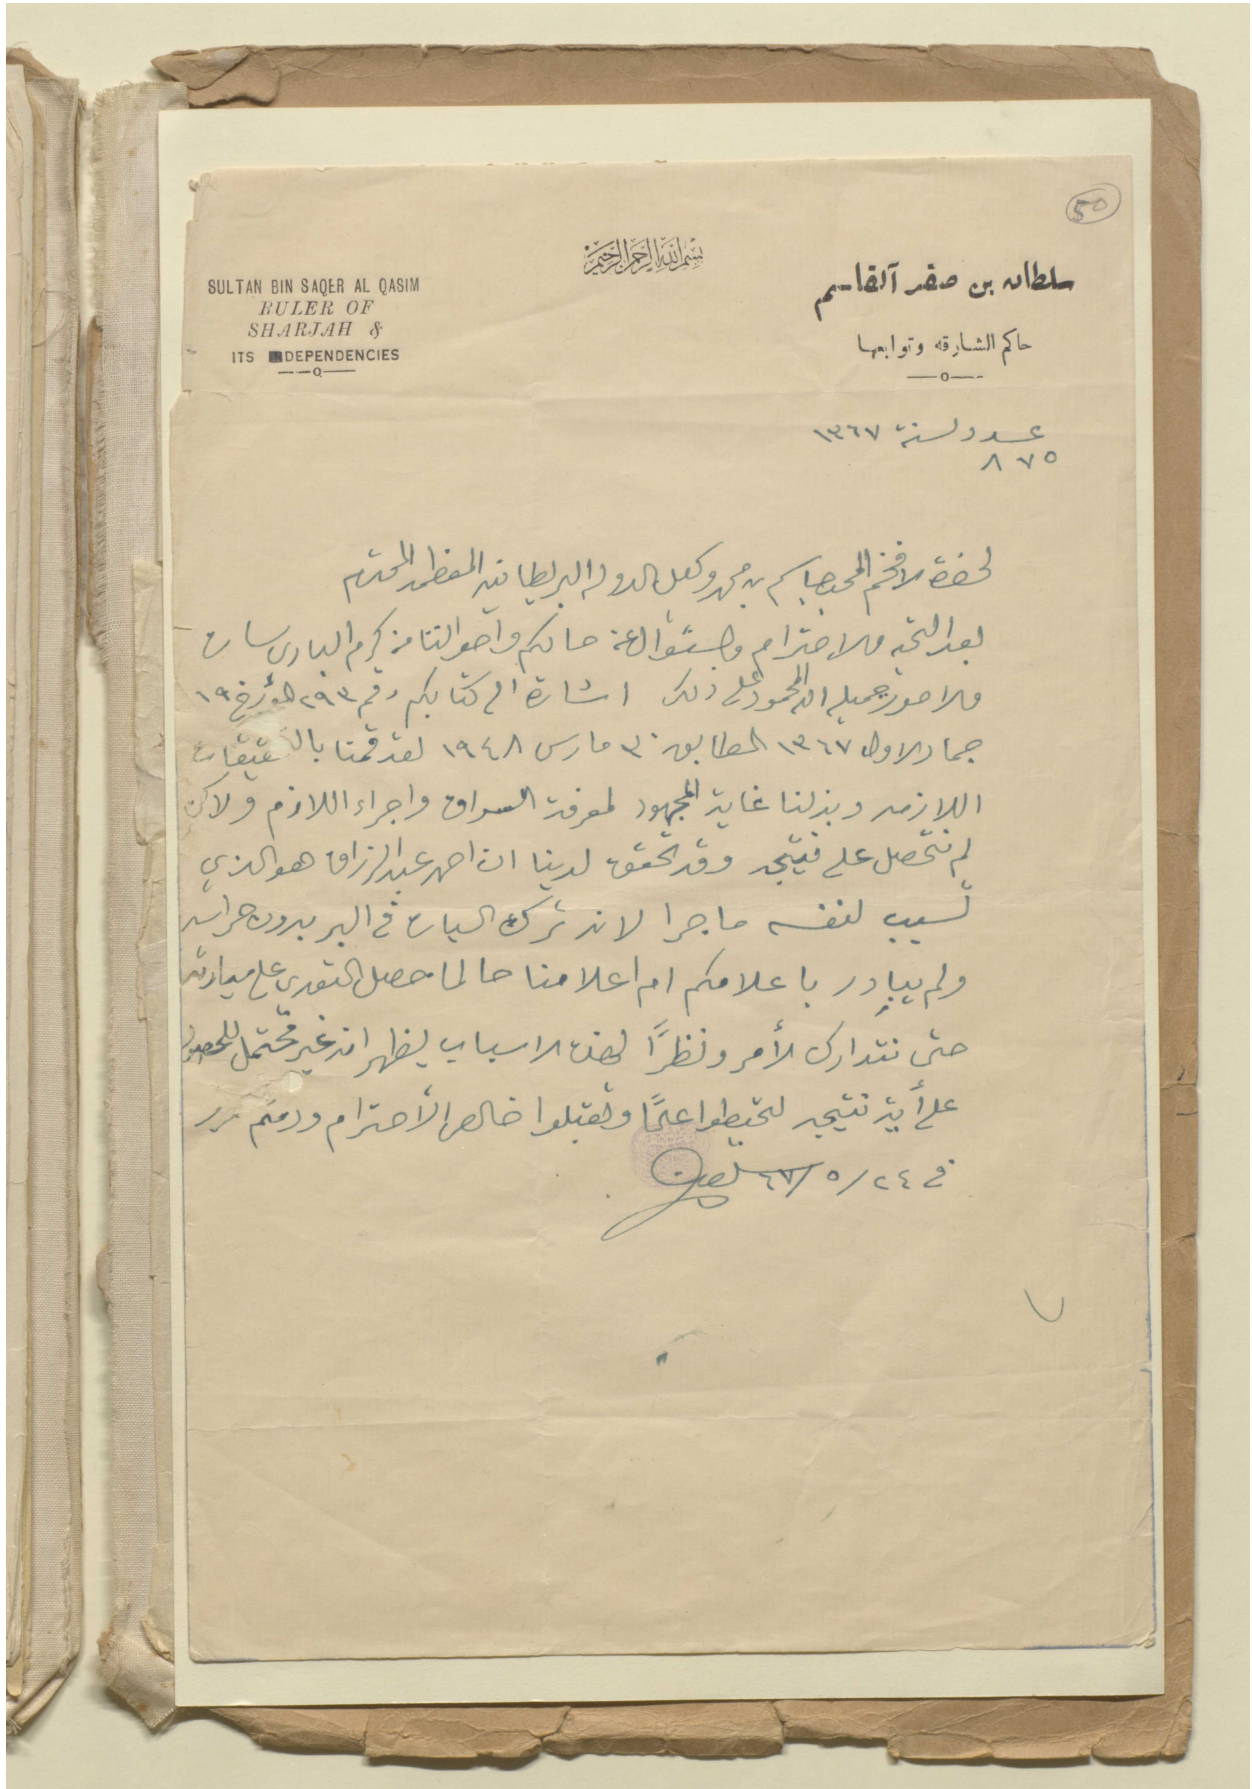 50
بسم الله الرحمن الرحيم
SULTAN BIN SAQER AL QASIM
RULER OF
SHARJAH &
ITS DEPENDENCIES
سلطان بن صقر آلقاسم
حاكم الشارقه وتوابعها
عدد لسنة ١٣٦٧
٨٧٥
لحضرة الافخم المحب جاسم بن محمد وكيل الدوله البريطانيه المفظم المحترم
بعد التحيه والاحترام والسئوال عن حالكم واحوالنا من كرم الباري ساره
والامور جميله الله المحمود على ذلك اشارة الى كتابكم رقم ٢٩٣ المؤرخ ١٩
جماد الاول ١٣٦٧ المطابق ٣٠ مارس ١٩٤٨ لقد قمنا بالتحقيقات
اللازمه وبذلنا غاية المجهود لمعرفة السراق واجراء اللازم ولاكن
لم نتحصل على نتيجه وقد تحقق لدينا ان احمد عبد الرزاق هو الذي
تسبب لنفسه ما جرا لانه ترك السياره في البر بدون حراسه
ولم يبادر باعلامكم ام اعلامنا حالما حصل التعدي على سيارته
حتى نتدارك الأمر ونظرًا لهذه الاسباب يظهر انه غير محتمل للحصول
على أية نتيجه لتحيطوا علمًا وتقبلوا خالص الأحترام ودمتم
في ٢٤/٥/٦٧